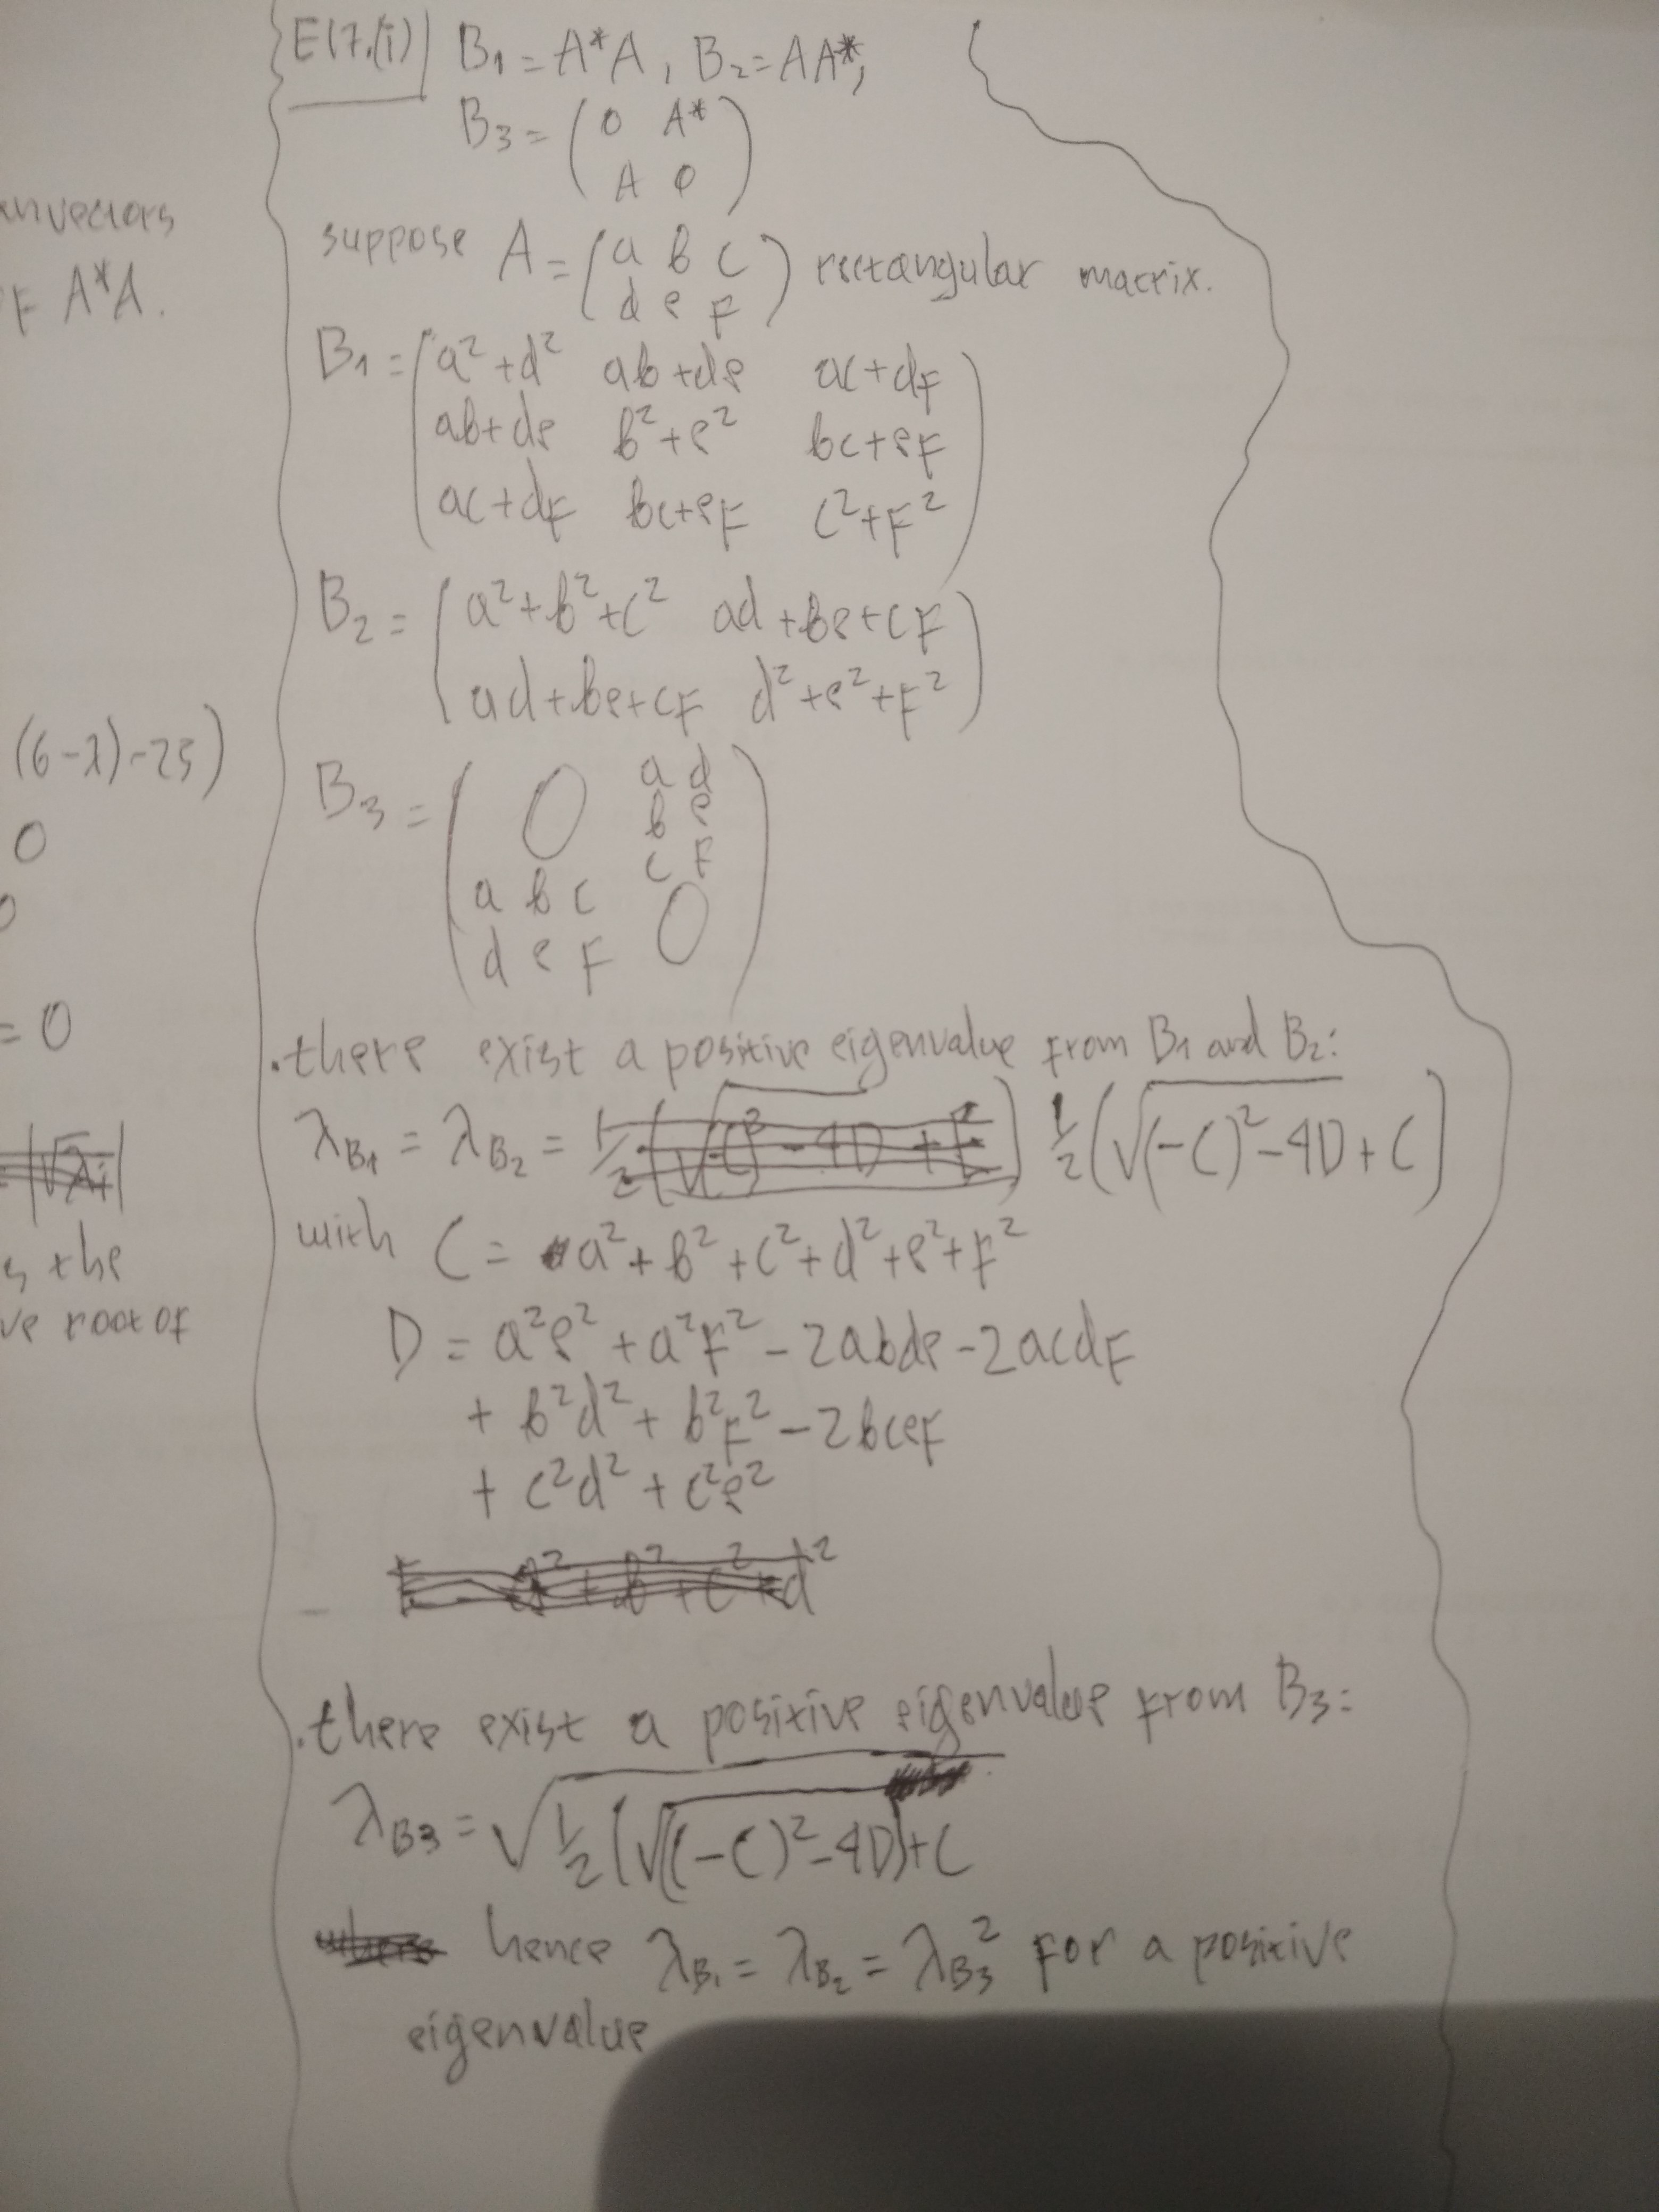 anvectors
F A*A.
(6-λ)-25)
0
0
= 0
|√λi|
s the
ve root of
E17.(i) B₁ = A*A, B₂ = AA*,
B₃ = ( 0 A*
A 0 )
suppose A = ( a b c ) rectangular matrix.
d e F
B₁ = ( a²+d² ab+de ac+dF
ab+de b²+e² bc+eF
ac+dF bc+eF c²+F² )
B₂ = ( a²+b²+c² ad+be+cF
ad+be+cF d²+e²+F² )
B₃ = ( 0 a d
b e
c F
a b c 0
d e F )
.there exist a positive eigenvalue from B₁ and B₂:
λB₁ = λB₂ = 1/2(√(-C)²-4D + C)
with C = a²+b²+c²+d²+e²+F²
D = a²e² + a²F² - 2abde - 2acdF
+ b²d² + b²F² - 2bceF
+ c²d² + c²e²
a² + b² + c² + d²
.there exist a positive eigenvalue from B₃:
λB₃ = √1/2(√((-C)²-4D)+C
where hence λB₁ = λB₂ = λB₃² For a positive
eigenvalue